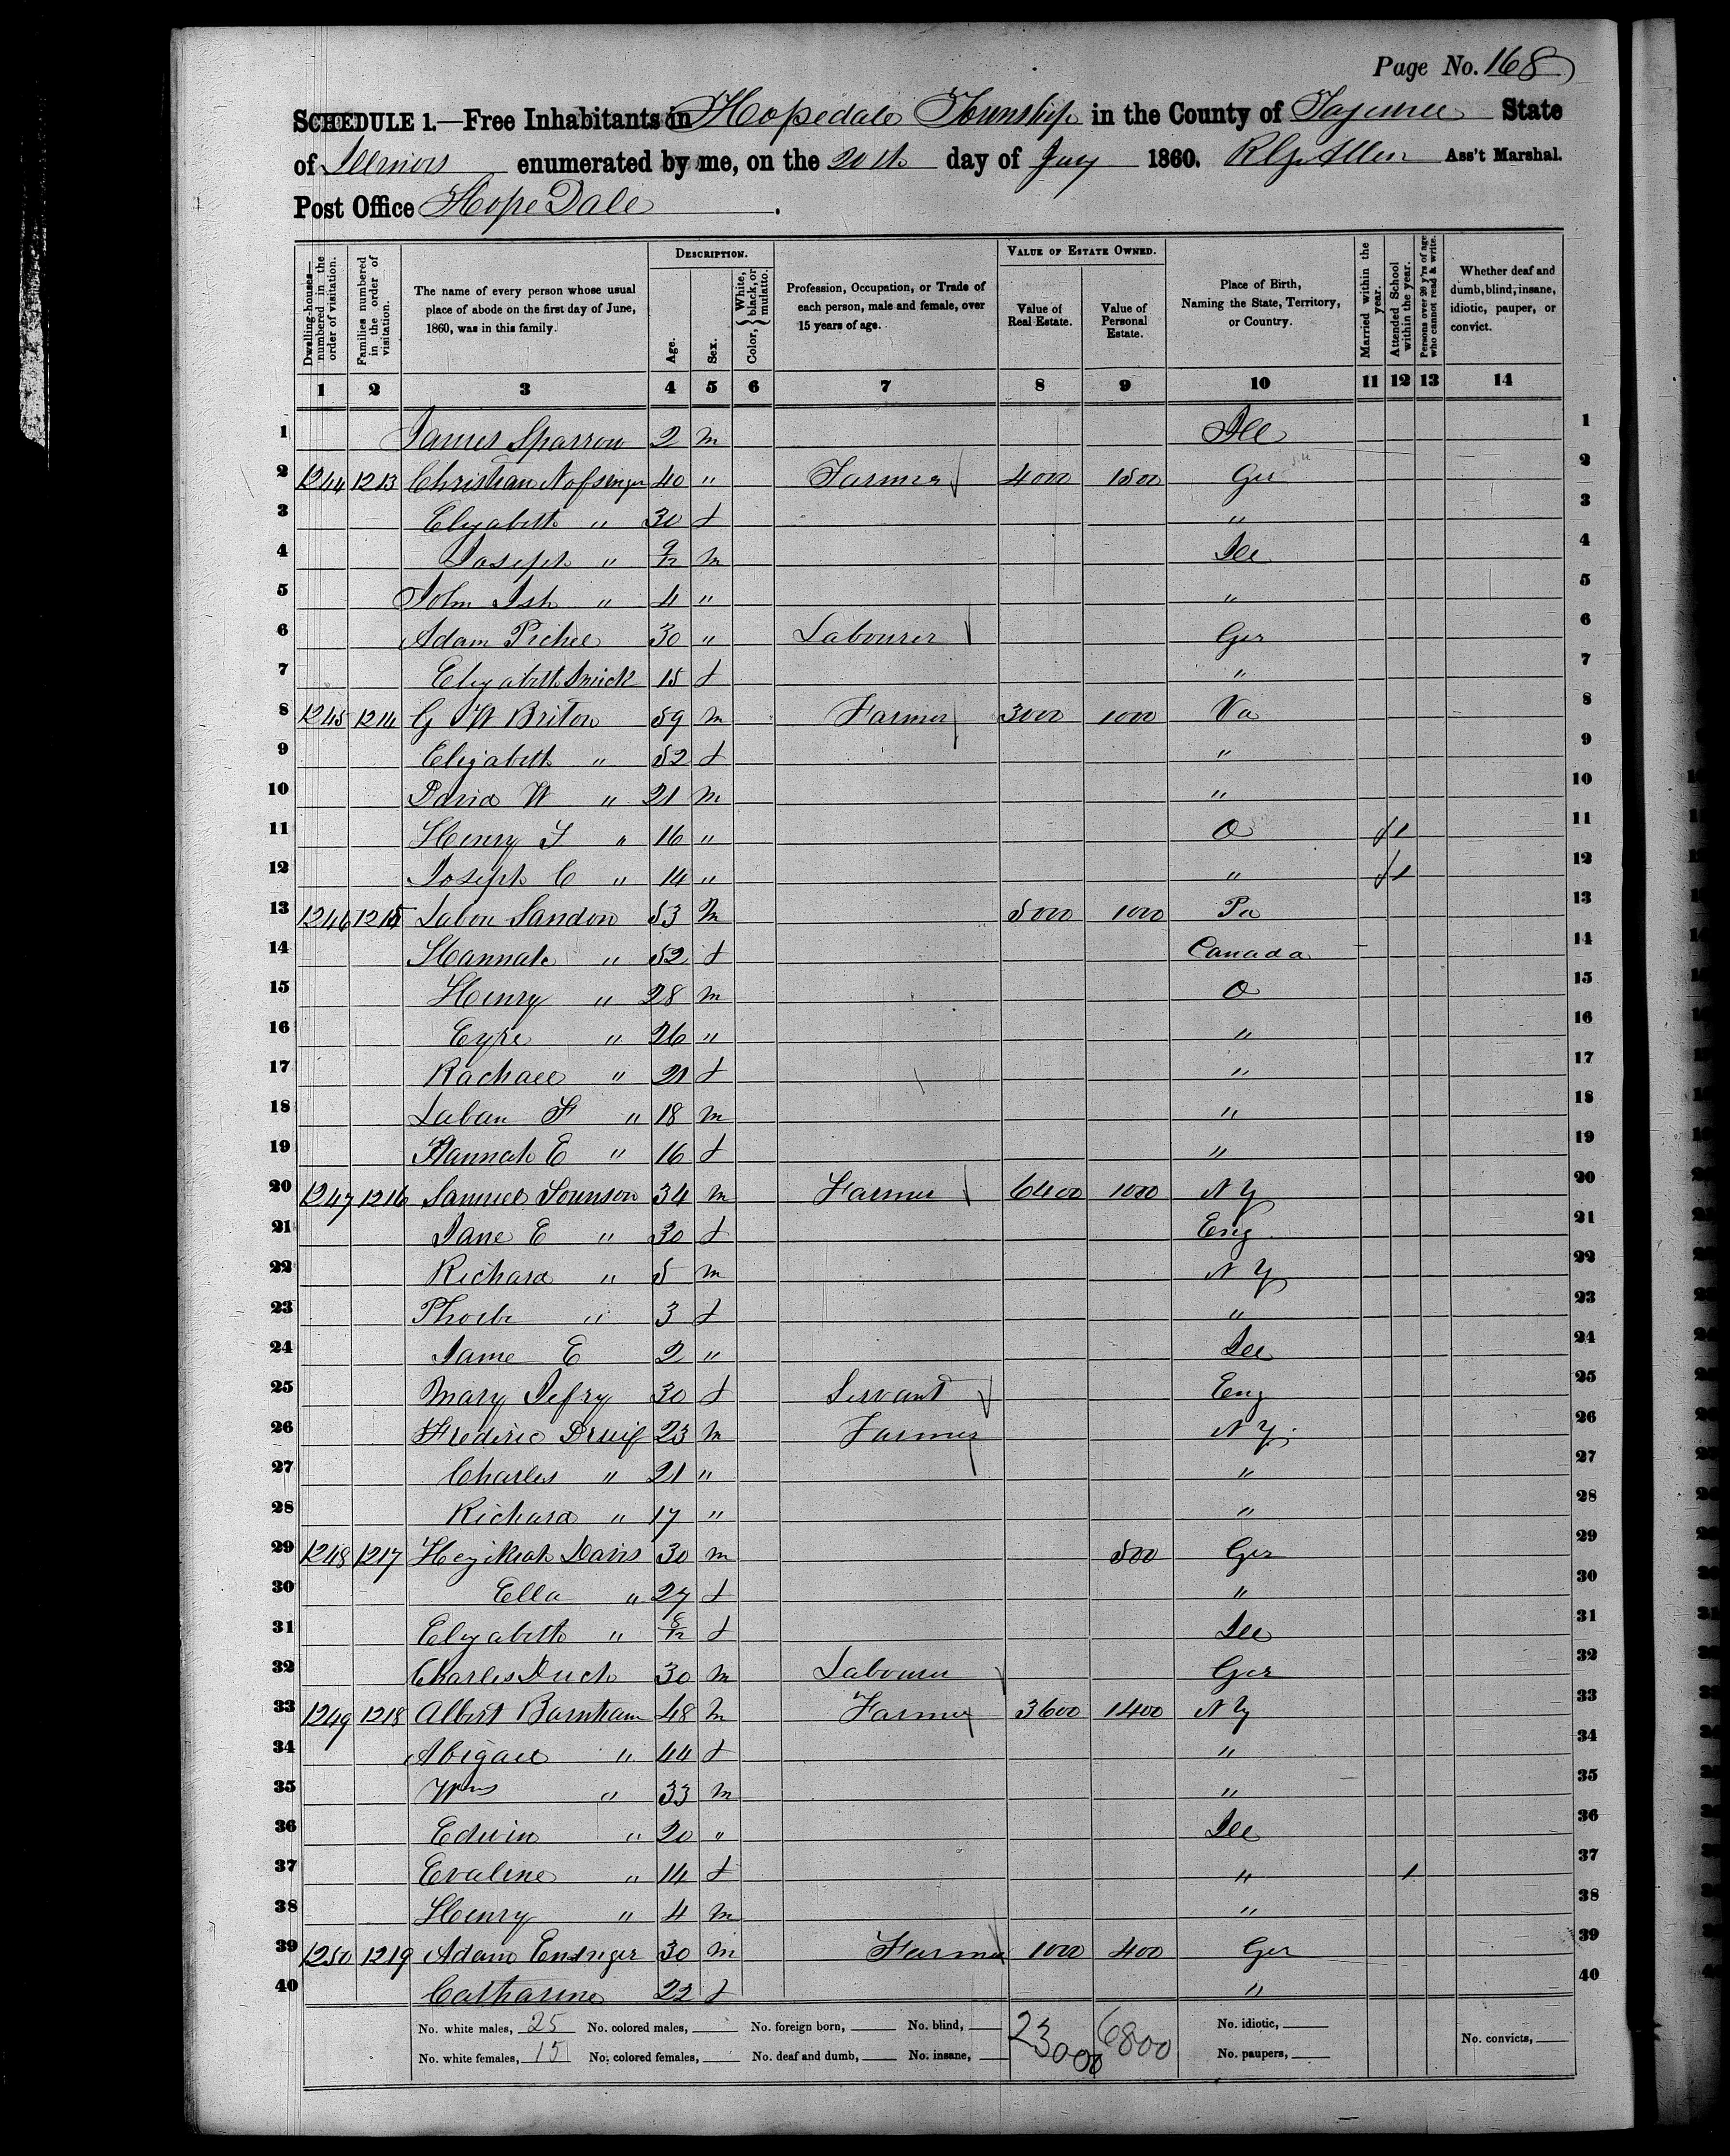 Page No. 168
SCHEDULE 1.—Free Inhabitants in Hopedale Township in the County of Tazewell State
of Illinois enumerated by me, on the 20th day of July 1860. Allen Ass't Marshal.
Post Office Hope Dale.
Dwelling-houses—numbered in the order of visitation.
Families numbered in the order of visitation.
The name of every person whose usual place of abode on the first day of June, 1860, was in this family.
DESCRIPTION.
Age.
Sex.
Color, { White, black, or mulatto.
Profession, Occupation, or Trade of each person, male and female, over 15 years of age.
VALUE OF ESTATE OWNED.
Value of Real Estate.
Value of Personal Estate.
Place of Birth, Naming the State, Territory, or Country.
Married within the year.
Attended School within the year.
Persons over 20 y'rs of age who cannot read & write.
Whether deaf and dumb, blind, insane, idiotic, pauper, or convict.
1 2 3 4 5 6 7 8 9 10 11 12 13 14
1 James Sparrow 2 m Ill 1
2 1244 1213 Christian Nofsinger 40 " Farmer 4000 1500 Ger 2
3 Elizabeth " 30 f " 3
4 Joseph " 9/12 m Ill 4
5 John Ish " 4 " " 5
6 Adam 30 " Labourer Ger 6
7 Elizabeth 15 f " 7
8 1245 1214 G W Briton 59 m Farmer 3000 1000 Va 8
9 Elizabeth " 52 f " 9
10 David W " 21 m " 10
11 Henry " 16 " O 1 11
12 Joseph C " 14 " " 1 12
13 1246 1215 Labon Sandon 53 m 5000 1000 Pa 13
14 Hannah " 52 f Canada 14
15 Henry " 28 m O 15
16 " 26 " " 16
17 Rachael " 21 f " 17
18 Laban F " 18 m " 18
19 Hannah E " 16 f " 19
20 1247 1216 Samuel 34 m Farmer 6400 1000 N Y 20
21 Jane E " 30 f Eng 21
22 Richard " 5 m N Y 22
23 Phoebe " 3 f " 23
24 Jame E 2 " Ill 24
25 Mary Jefry 30 f Servant Eng 25
26 Frederic 23 m Farmer N Y. 26
27 Charles " 21 " " 27
28 Richard " 17 " " 28
29 1248 1217 Hezikiah Davis 30 m 500 Ger 29
30 Ella " 27 f " 30
31 Elizabeth " 8/12 f Ill 31
32 Charles 30 m Labourer Ger 32
33 1249 1218 Albert Barnham 48 m Farmer 3600 1400 N Y 33
34 Abigail " 44 f " 34
35 Wm " 33 m " 35
36 Edwin " 20 " Ill 36
37 Evaline " 14 f " 1 37
38 Henry " 4 m " 38
39 1250 1219 Adam 30 m Farmer 1000 400 Ger 39
40 Catharine 22 f " 40
No. white males, 25 No. colored males, No. foreign born, No. blind, 23000 6800 No. idiotic, No. convicts,
No. white females, 15 No. colored females, No. deaf and dumb, No. insane, No. paupers,